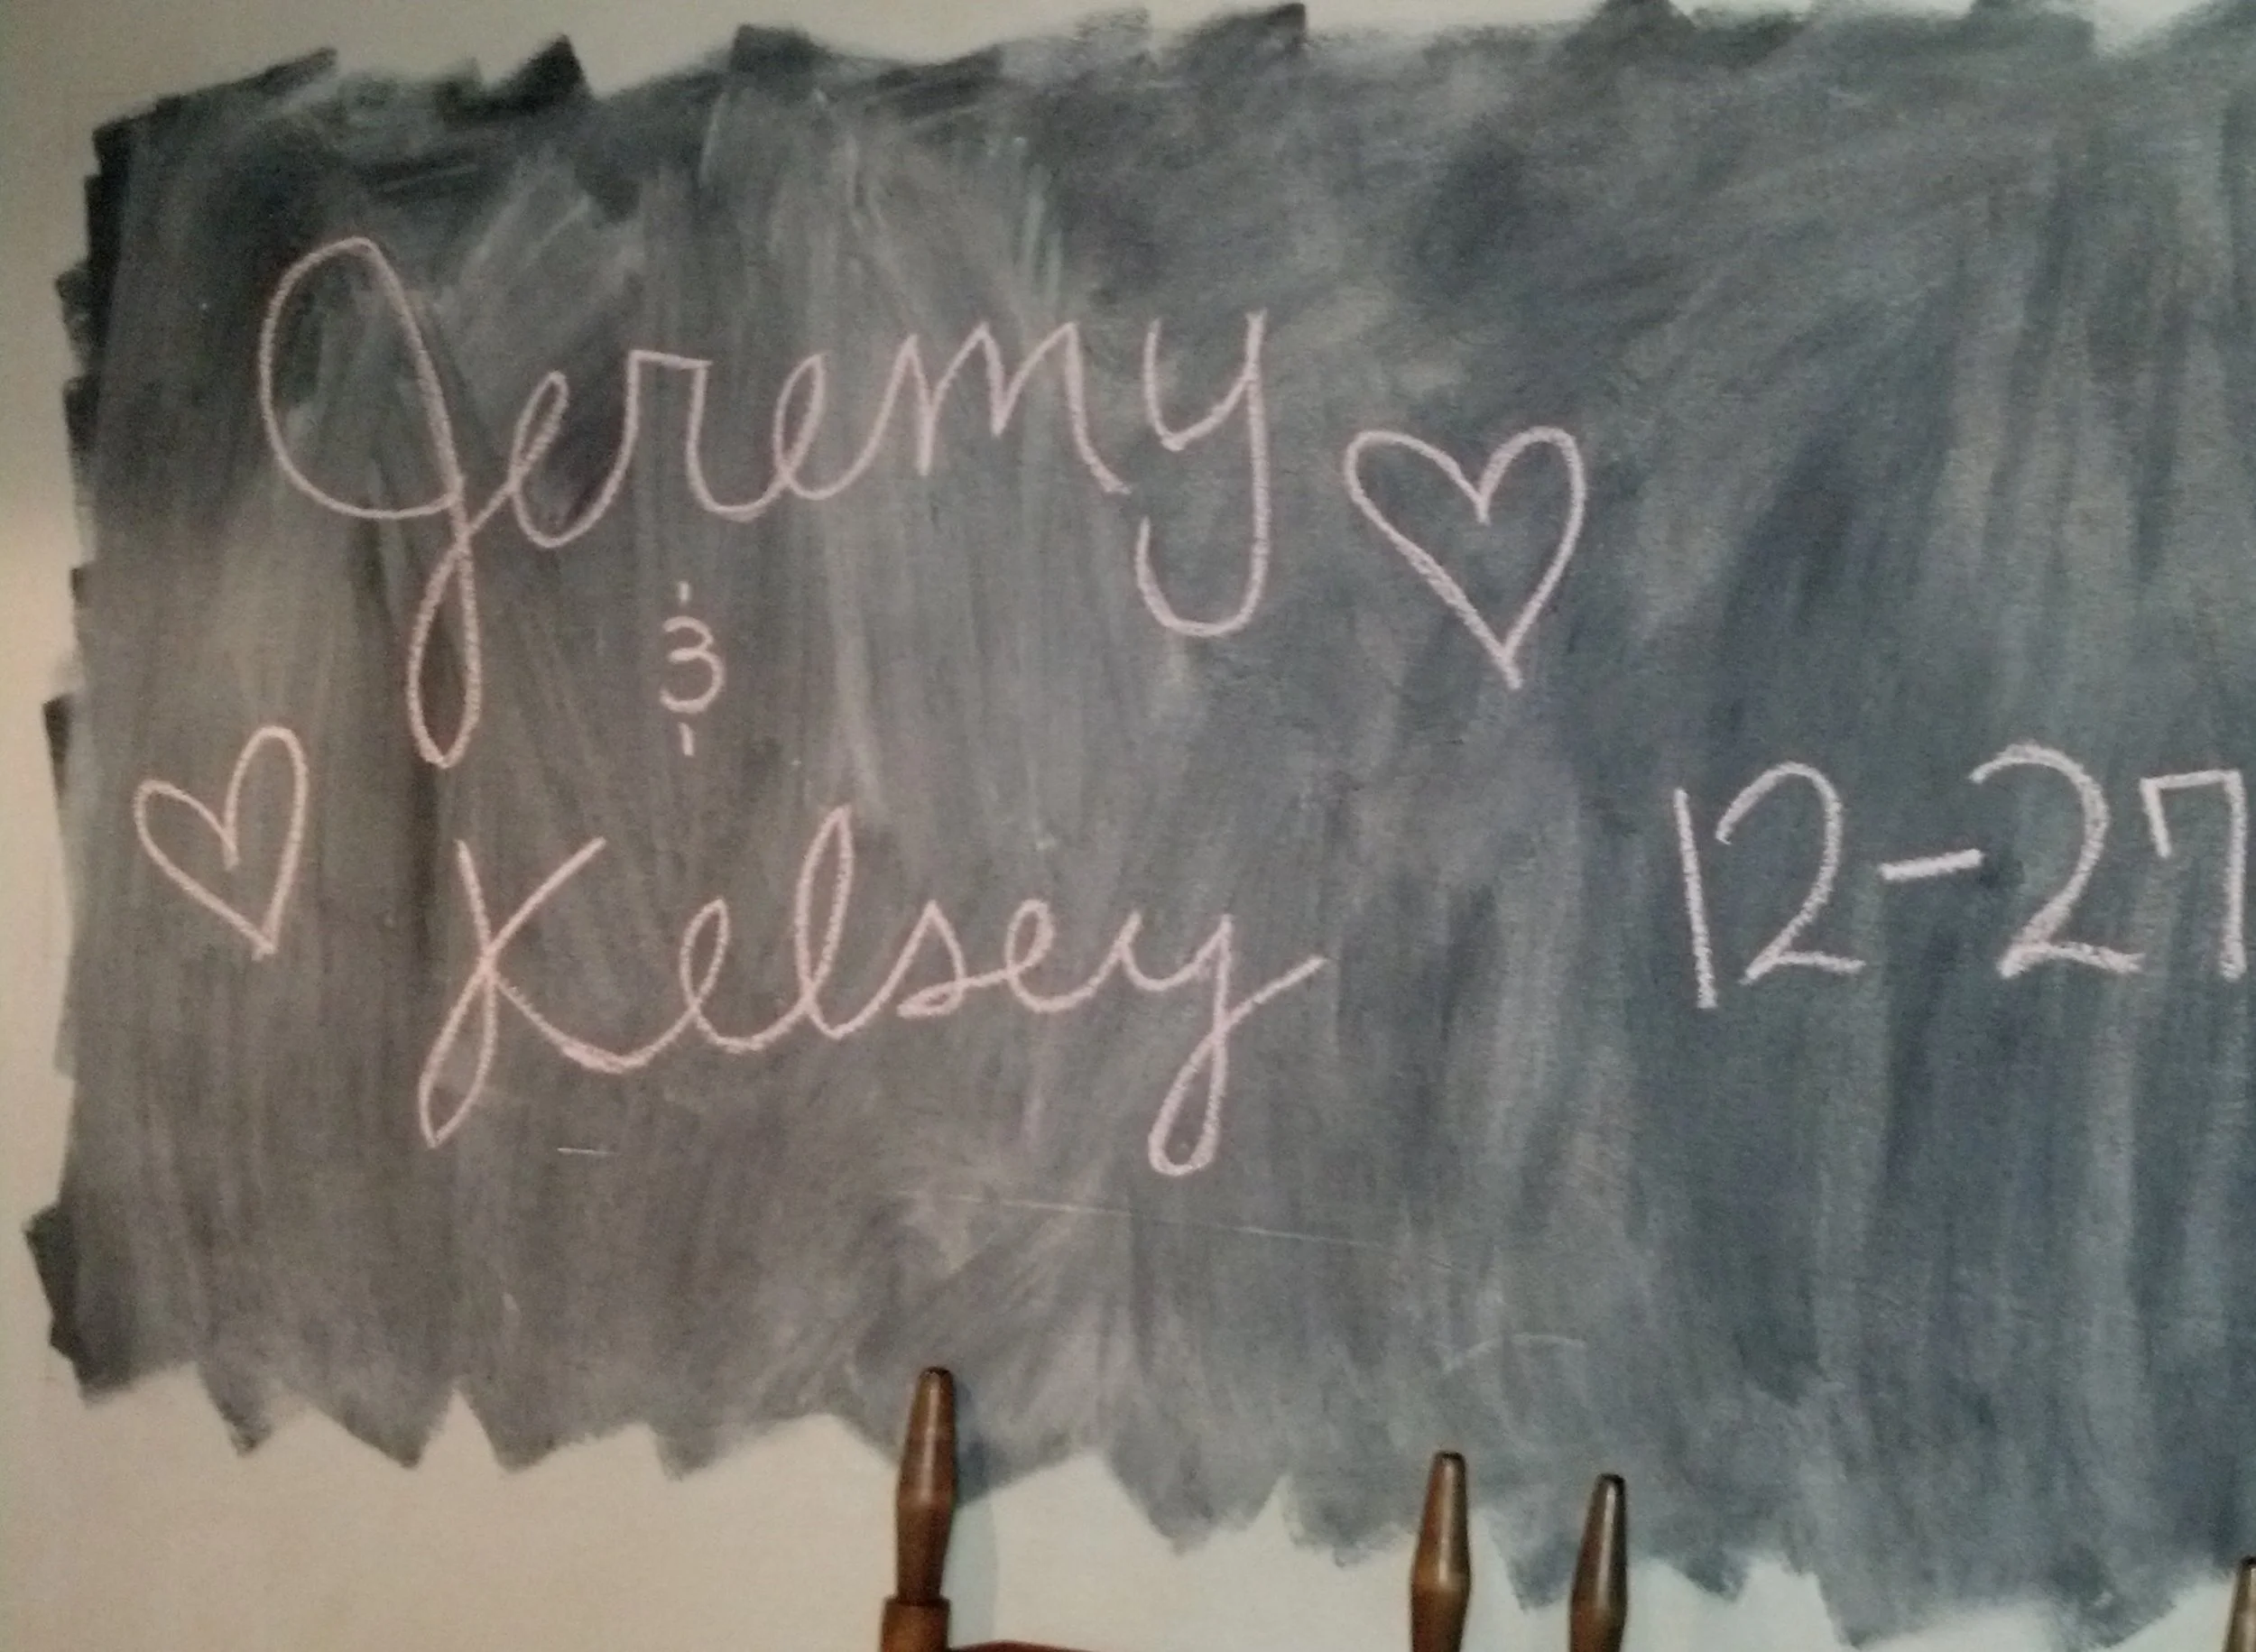 Jeremy
&
Kelsey
12-27